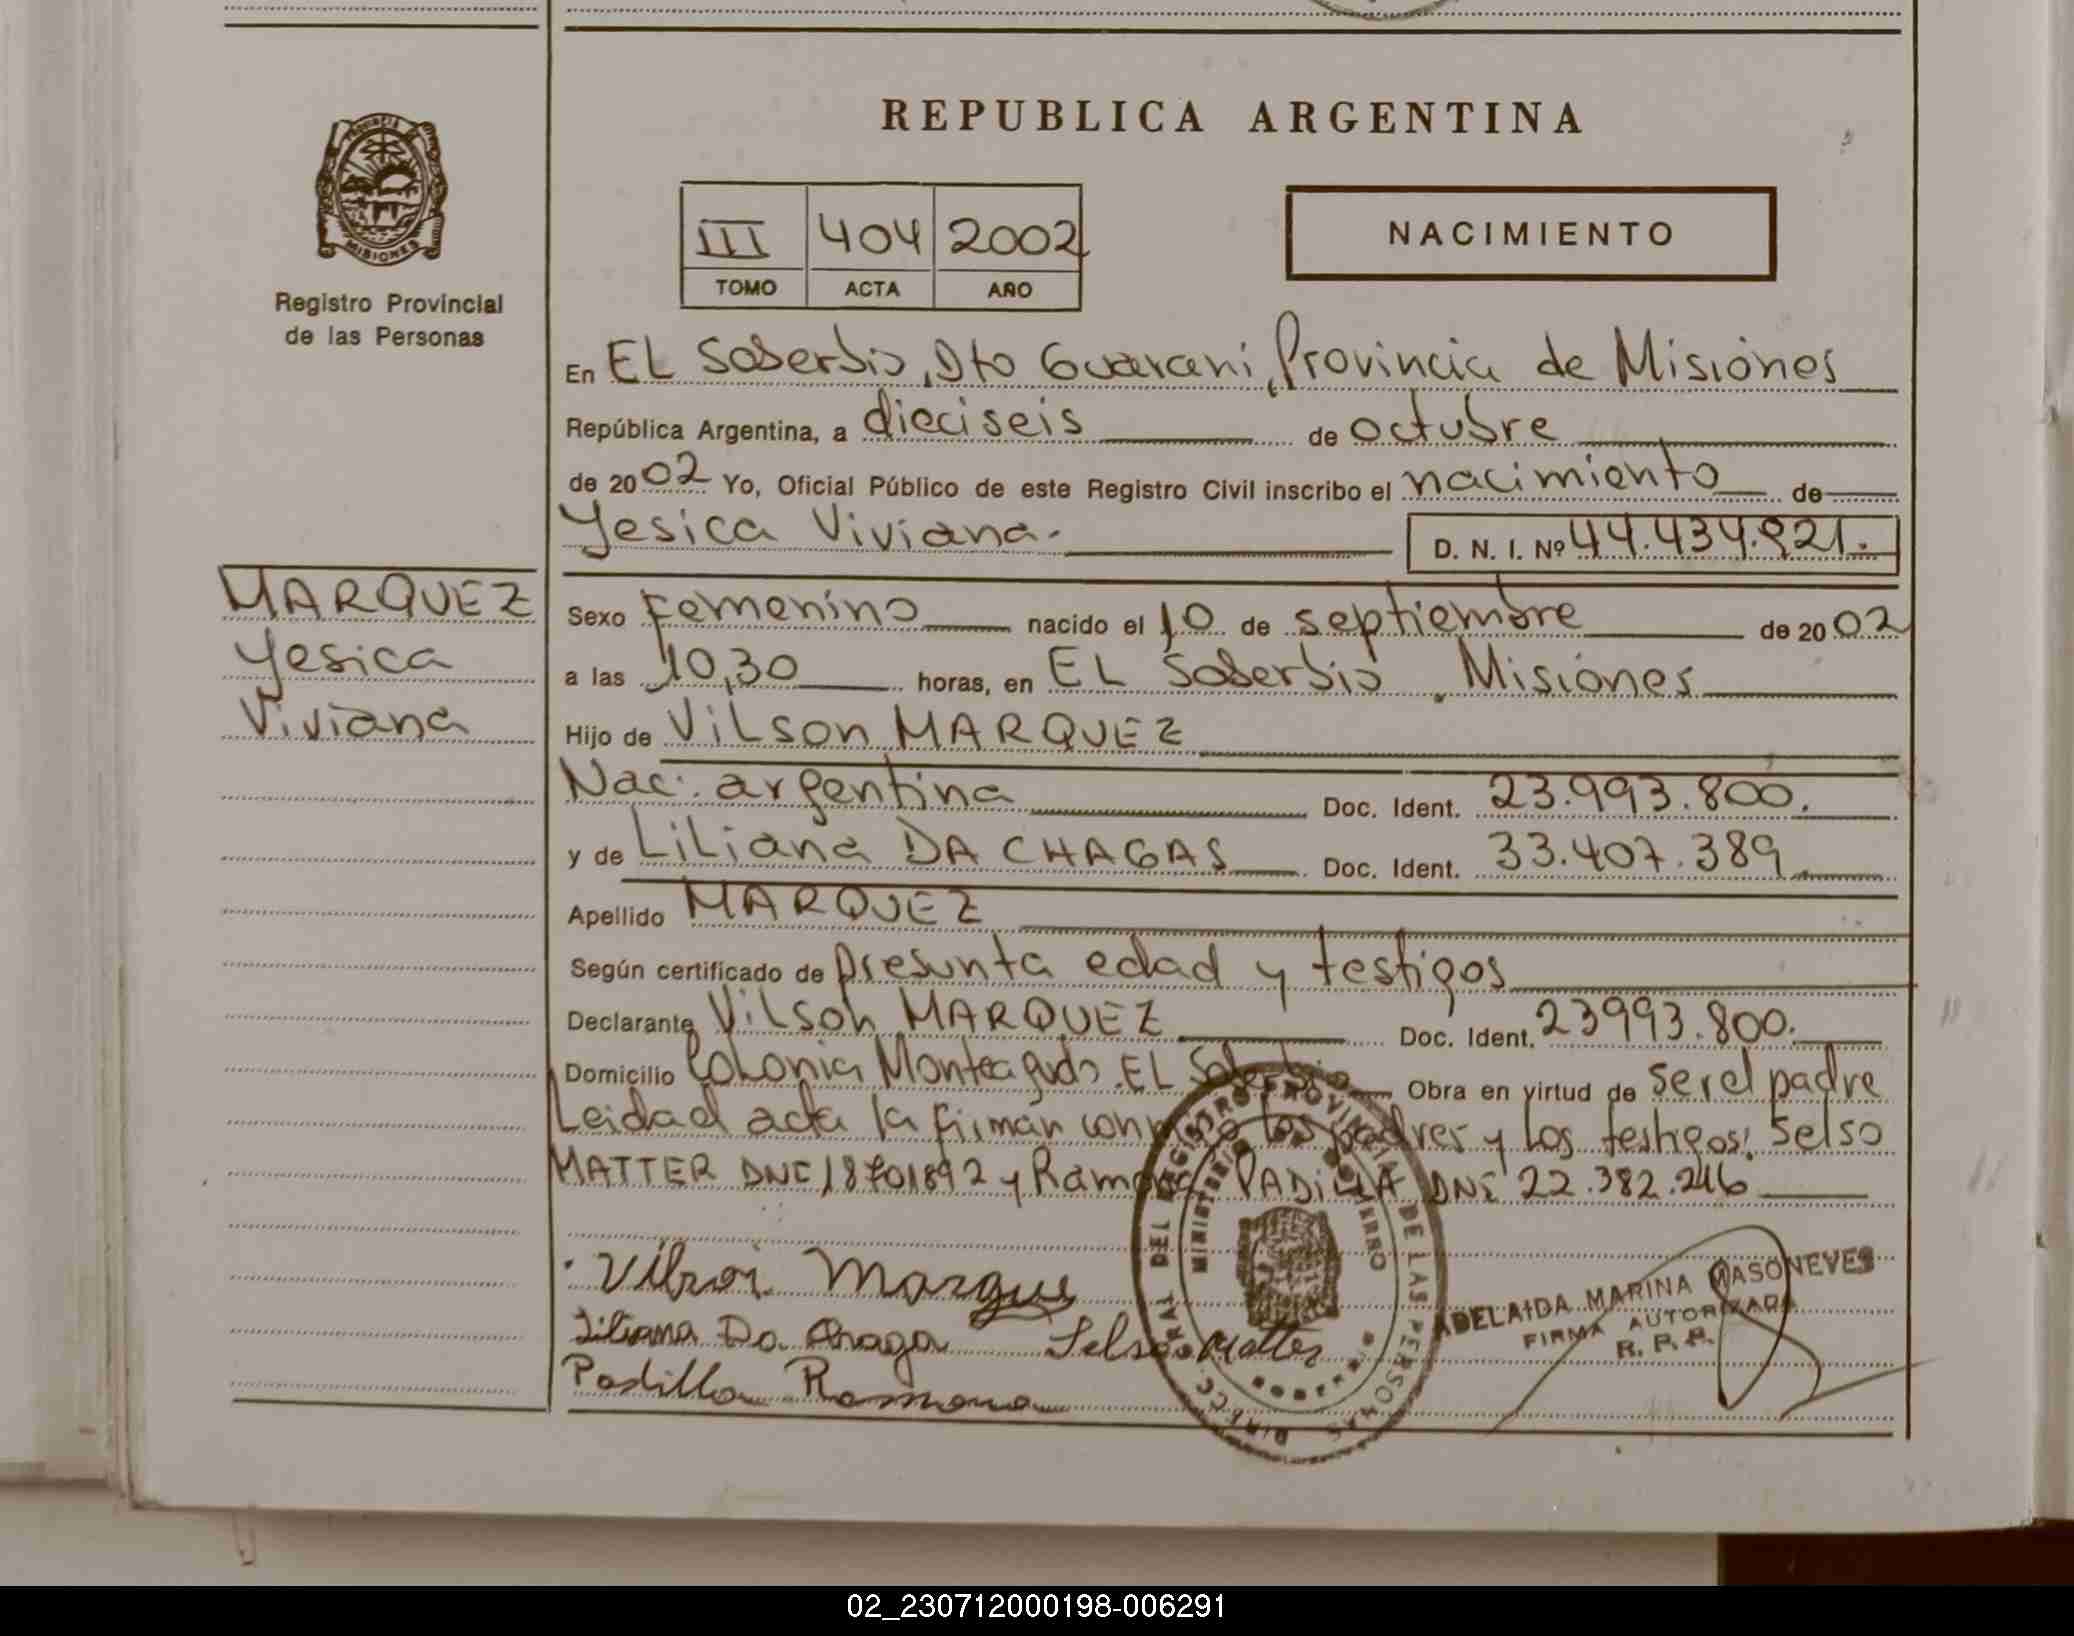 REPUBLICA ARGENTINA
PROVINCIA DE MISIONES
Registro Provincial
de las Personas
III 404 2002
TOMO ACTA AÑO
NACIMIENTO
En EL Soberbio, Dto Guarani, Provincia de Misiones
República Argentina, a dieciseis de octubre
de 2002 Yo, Oficial Público de este Registro Civil inscribo el nacimiento de
Yesica Viviana.
D. N. I. Nº 44.434.921.
MARQUEZ
Yesica
Viviana
Sexo Femenino nacido el 10 de septiembre de 2002
a las 10,30 horas, en EL Soberbio, Misiones
Hijo de Vilson MARQUEZ
Nac: argentina Doc. Ident. 23.993.800.
y de Liliana DA CHAGAS Doc. Ident. 33.407.389
Apellido MARQUEZ
Según certificado de presunta edad y testigos
Declarante Vilson MARQUEZ Doc. Ident. 23993.800.
Domicilio Colonia Monteagudo, EL Soberbio Obra en virtud de ser el padre
Leidad acta la firman los padres y los testigos: Selso
MATTER DNI 18701892 y Ramona PADILLA DNI 22.382.216
Marque
Liliana Da Chaga Selso Matter
Padilla Ramona
DIRECC. GRAL. DEL REGISTRO PROVINCIAL DE LAS PERSONAS
MINISTERIO DE GOBIERNO
ADELAIDA MARINA MASONEVES
FIRMA AUTORIZADA
R. P. P.
02_230712000198-006291